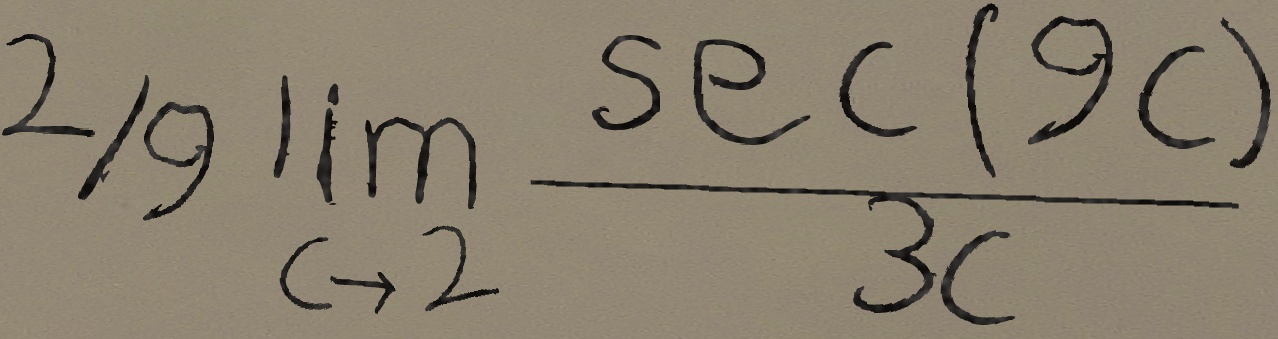 2/9 lim_{c→2} \frac{sec(9c)}{3c}